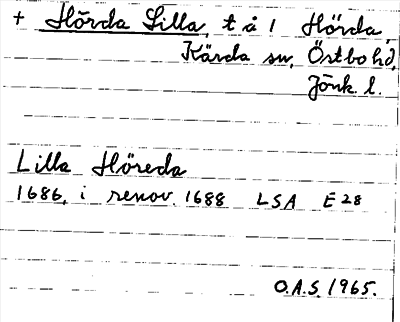 + Hörda Lilla, t å 1 Hörda,
Kärda sn, Östbo hd,
Jönk. l.
Lilla Höreda
1686, i renov. 1688 LSA E 28
O.A.S. 1965.